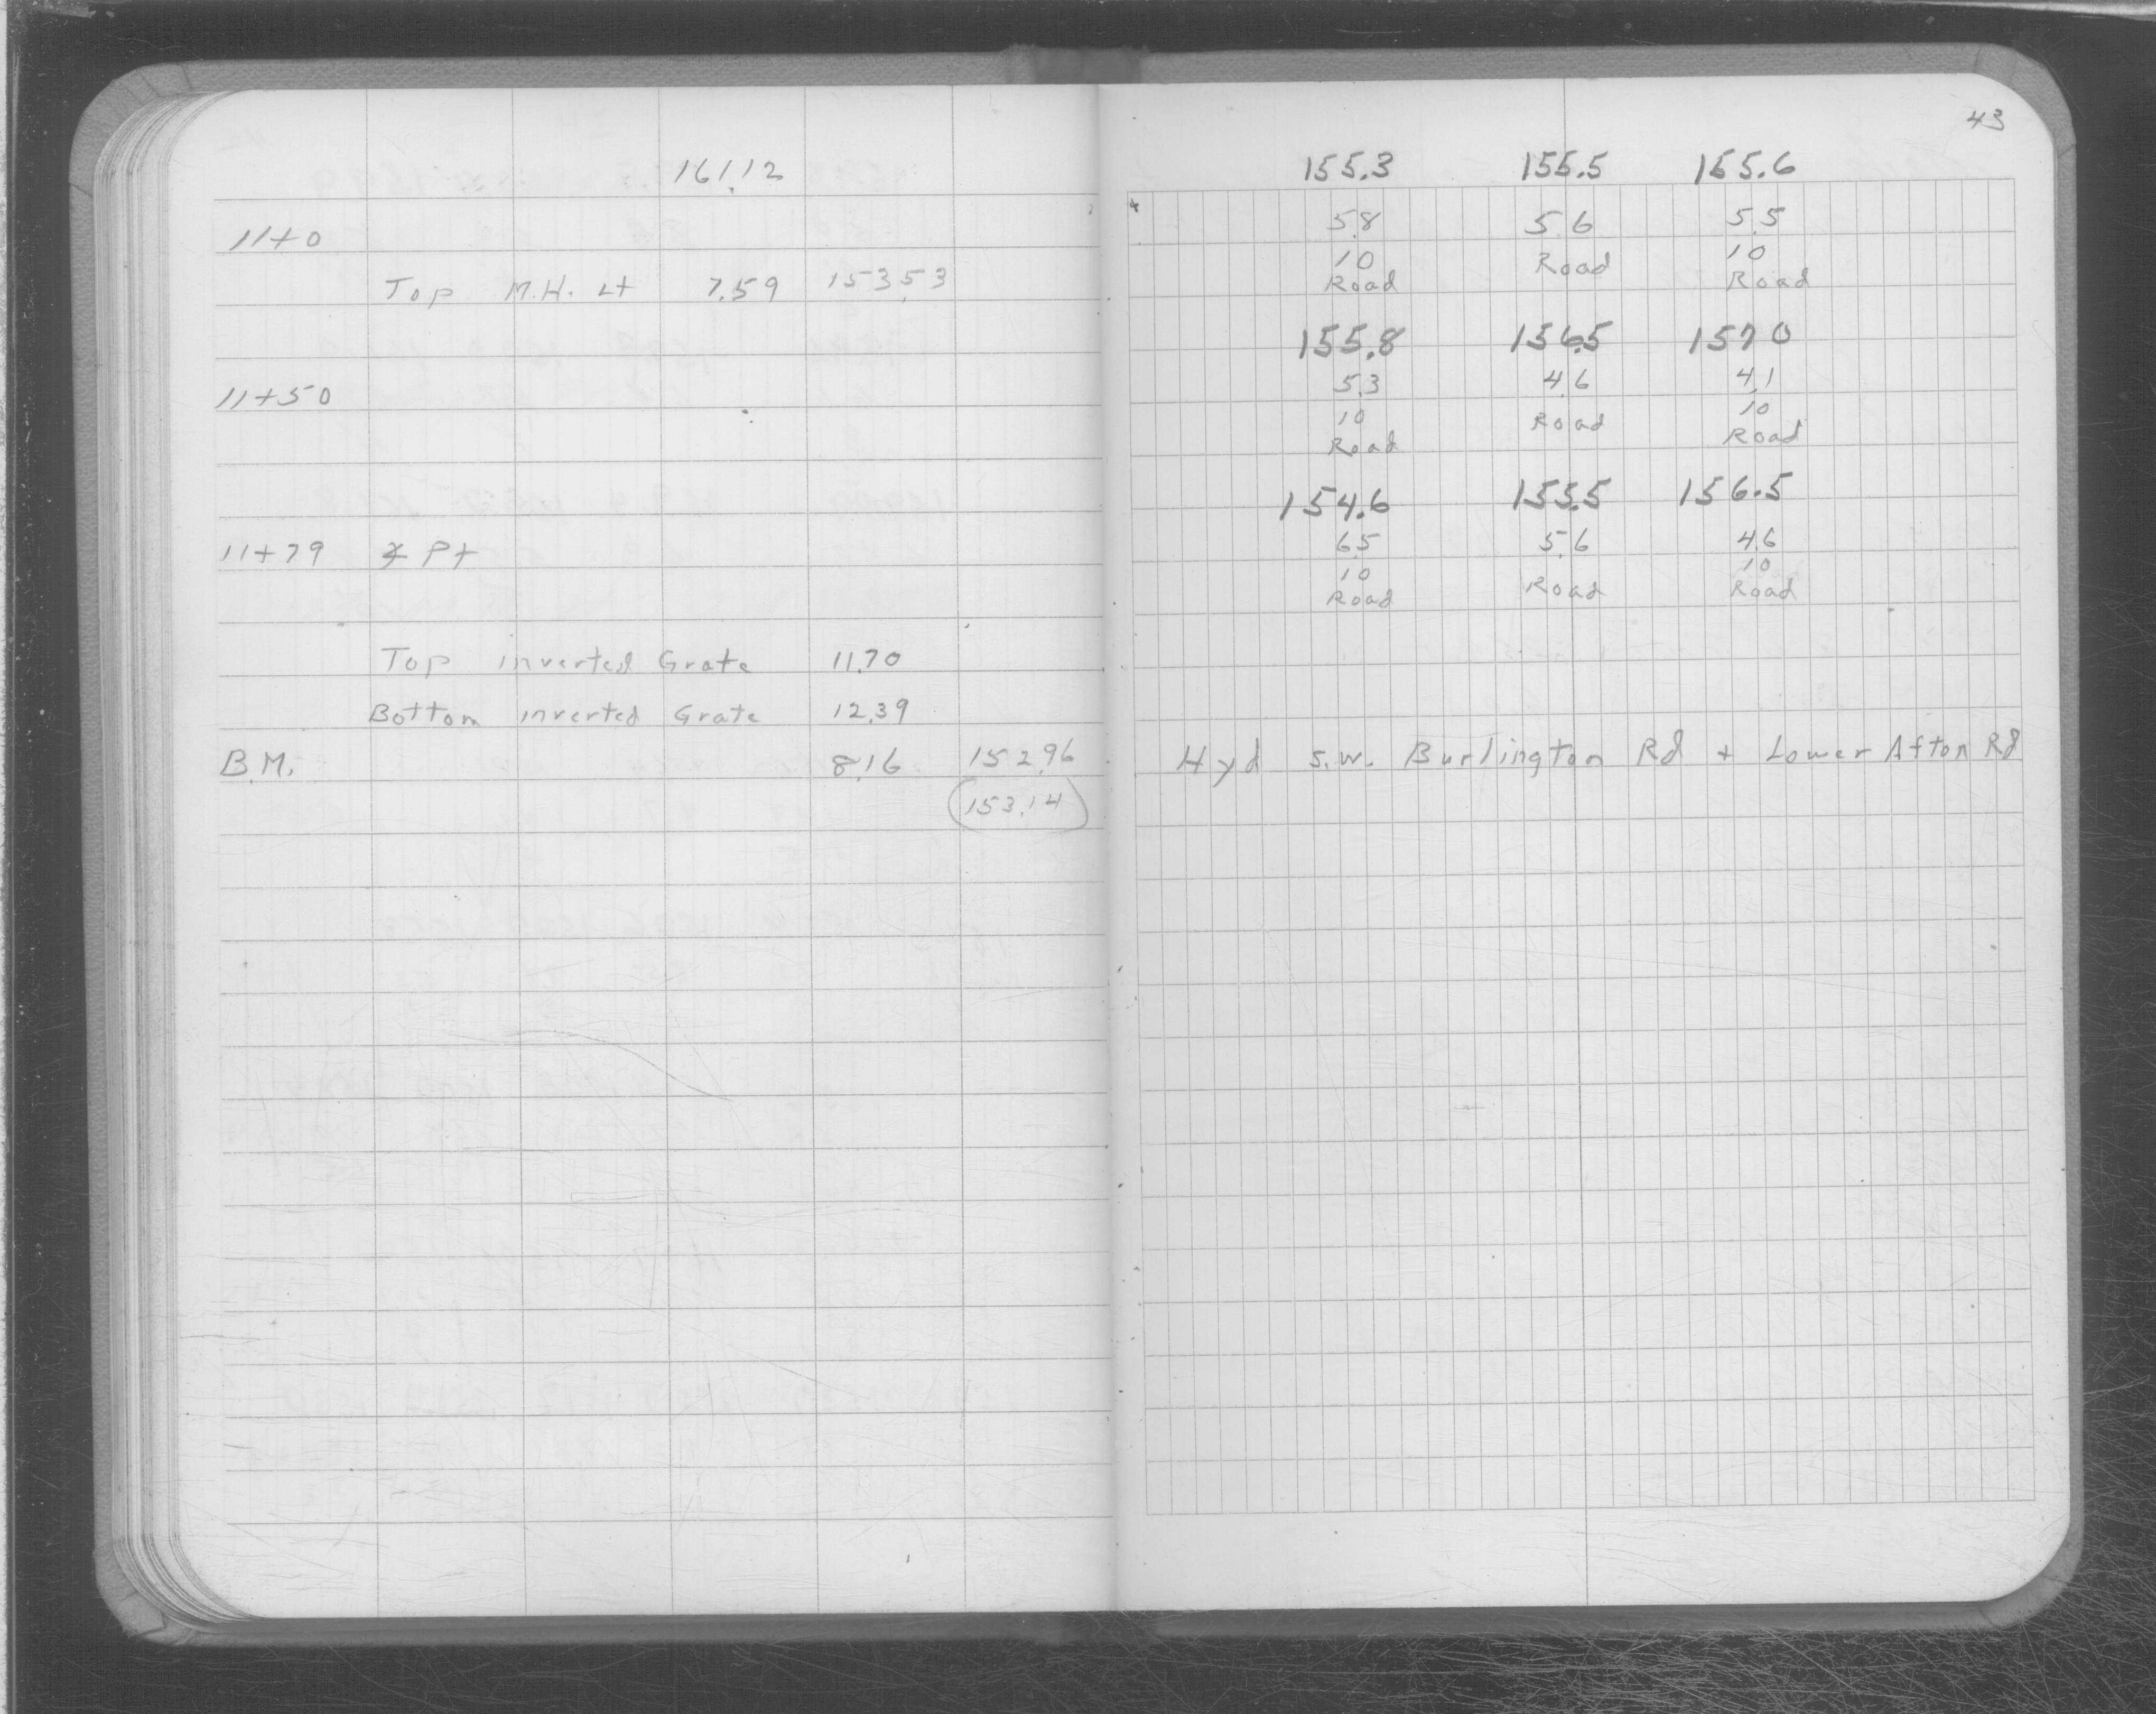 161.12
11+0
Top M.H. Lt 7.59 153.53
11+50
11+79 ⦨ Pt
Top inverted Grate 11.70
Bottom inverted Grate 12.39
B.M. 8.16 152.96
(153.14)
43
155.3 155.5 155.6
5.8 5.6 5.5
10 Road 10
Road Road
155.8 156.5 157.0
5.3 4.6 4.1
10 Road 10
Road Road
154.6 155.5 156.5
6.5 5.6 4.6
10 Road 10
Road Road
Hyd S.W. Burlington Rd + Lower Afton Rd